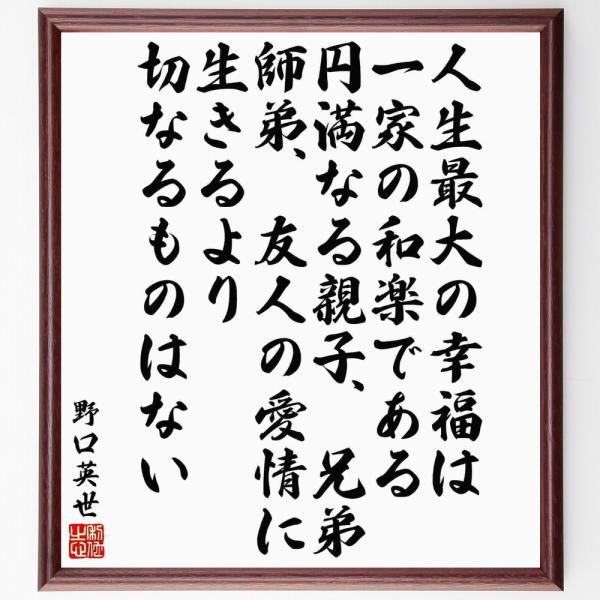 人生最大の幸福は
一家の和楽である
円満なる親子、兄弟
師弟、友人の愛情に
生きるより
切なるものはない
野口英世